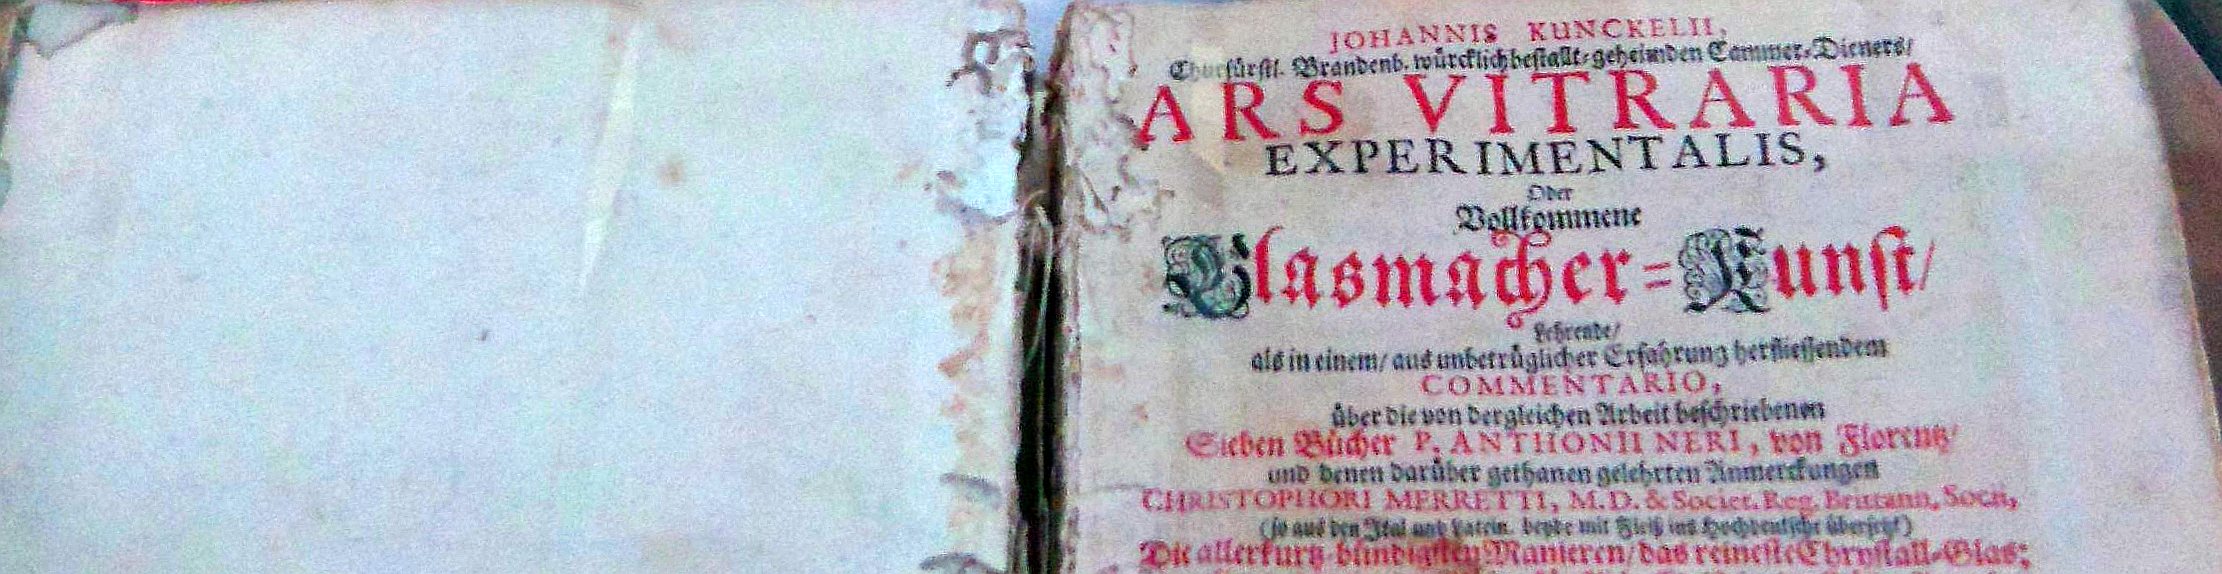 JOHANNIS KUNCKELII,
Churfürstl. Brandenb. würcklich bestallt-geheimden Cammer-Dieners/
ARS VITRARIA
EXPERIMENTALIS,
Oder
Vollkommene
Glasmacher-Kunst/
Lehrende/
als in einem/ aus unbetrüglicher Erfahrung herfliessendem
COMMENTARIO,
über die von dergleichen Arbeit beschriebenen
Sieben Bücher P. ANTHONII NERI, von Florentz/
und denen darüber gethanen gelehrten Anmerckungen
CHRISTOPHORI MERRETTI, M.D. & Societ. Reg. Britann. Socii,
(so aus den Ital. und Latein. beyde mit Fleiß ins Hochdeutsche übersetzt)
Die allerkurtz-bündigsten Manieren/ das reineste Chrystall-Glas;